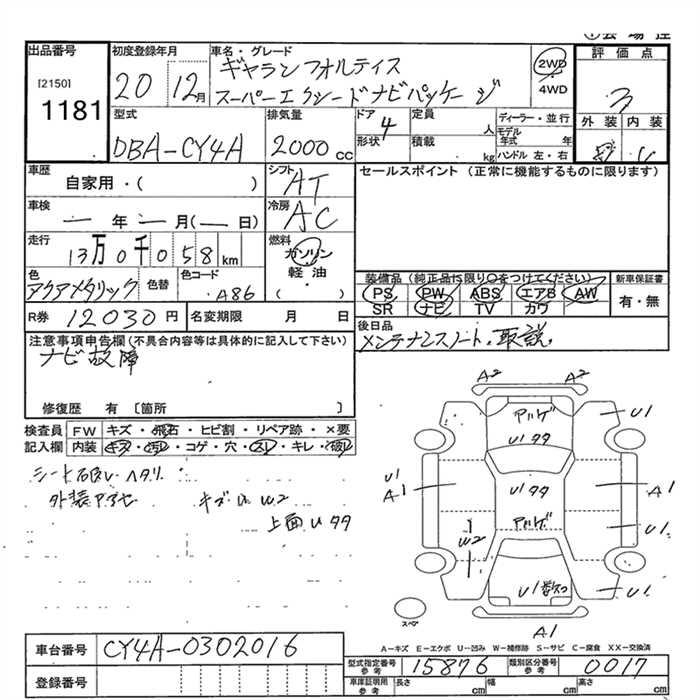 出品番号
[2150]
1181
初度登録年月
20 12月
車名・グレード
ギャランフォルティス
スーパーエクシードナビパッケージ
2WD
4WD
評価点
3
外装 内装
型式
DBA-CY4A
排気量
2000 cc
ドア 4
形状
定員 人
積載 kg
ディーラー・並行
モデル年式 年
ハンドル 左・右
車歴
自家用・( )
シフト
AT
セールスポイント (正常に機能するものに限ります)
車検
年 月( 日)
冷房
AC
走行
13万0千058km
燃料
ガソリン
軽・油
( )
色
アクアメタリック
色替
色コード
A86
装備品 (純正品に限り○をつけてください)
PS PW ABS エアB AW
SR ナビ TV カワ
新車保証書
有・無
R券 12030円
名変期限 月 日
後日品
メンテナンスノート、取説
注意事項申告欄(不具合内容等は具体的に記入して下さい)
ナビ故障
修復歴 有 〔箇所 〕
検査員 FW キズ・飛石・ヒビ割・リペア跡・×要
記入欄 内装 キズ・汚レ・コゲ・穴・スレ・キレ・破レ
キズU W2
上面Uタタ
A2 A2
アバゲ
U1タタ
U1
U1
A1
U1タタ
A1
アバゲ
W2
U1
U1
スペア
A1
A-キズ E-エクボ U-凹み W-補修跡 S-サビ C-腐食 XX-交換済
車台番号
CY4A-0302016
型式指定番号
参考
15876
類別区分番号
参考
0017
登録番号
車庫証明用
参考
長さ cm
幅 cm
高さ cm